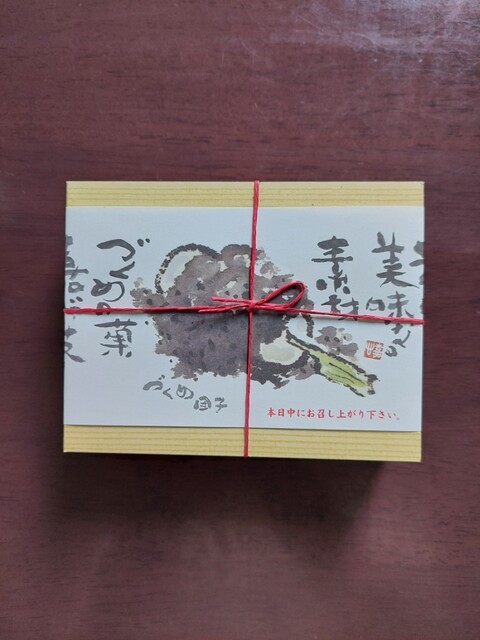 美味なる
素材
づくめの菓
づくめ団子
本日中にお召し上がり下さい。